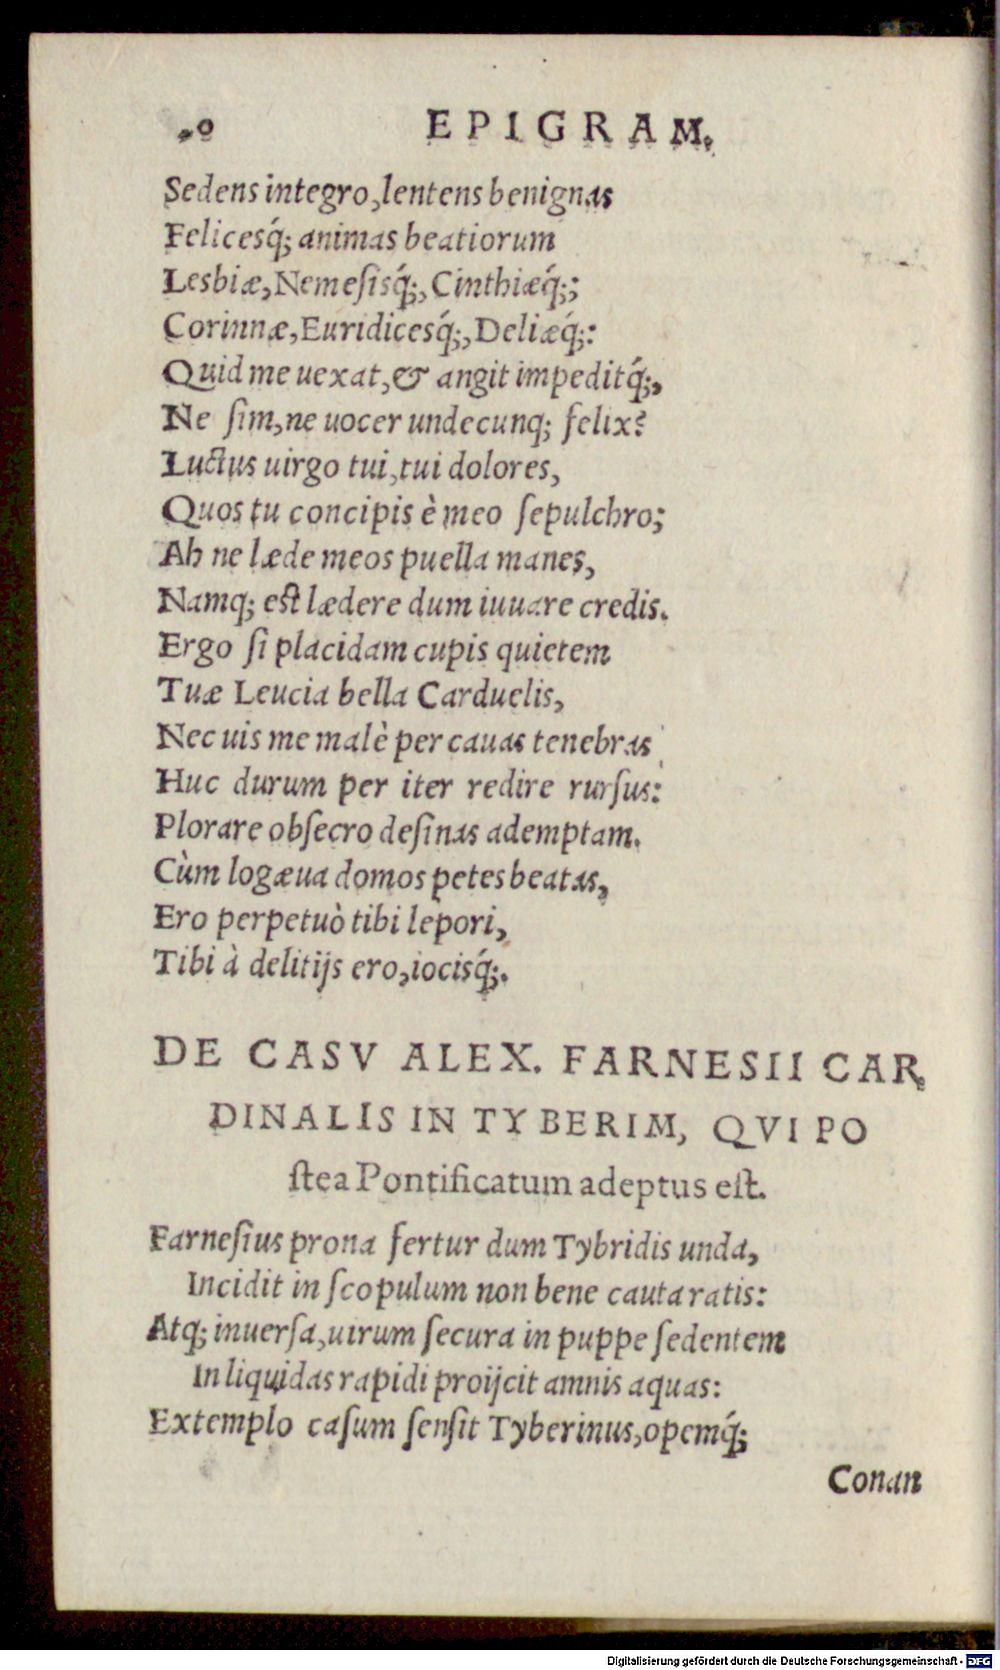 EPIGRAM.
Sedens integro, lentens benignas
Felicesq́; animas beatiorum
Lesbiæ, Nemeſisq́;, Cinthiæq́;;
Corinnæ, Euridicesq́;, Deliæq́;:
Quid me uexat, & angit impeditq́;,
Ne ſim, ne uocer undecunq; felix?
Luctus uirgo tui, tui dolores,
Quos tu concipis è meo ſepulchro;
Ah ne læde meos puella manes,
Namq; est lædere dum iuuare credis.
Ergo ſi placidam cupis quietem
Tuæ Leucia bella Carduelis,
Nec uis me malè per cauas tenebras
Huc durum per iter redire rurſus:
Plorare obſecro deſinas ademptam.
Cùm logæua domos petes beatas,
Ero perpetuò tibi lepori,
Tibi à delitijs ero, iocisq́;.
DE CASV ALEX. FARNESII CAR
DINALIS IN TYBERIM, QVI PO
ſtea Pontificatum adeptus eſt.
Farneſius prona fertur dum Tybridis unda,
Incidit in ſcopulum non bene cauta ratis:
Atq; inuerſa, uirum ſecura in puppe ſedentem
In liquidas rapidi proijcit amnis aquas:
Extemplo caſum ſenſit Tyberinus, opemq́;
Conan
Digitalisierung gefördert durch die Deutsche Forschungsgemeinschaft - DFG